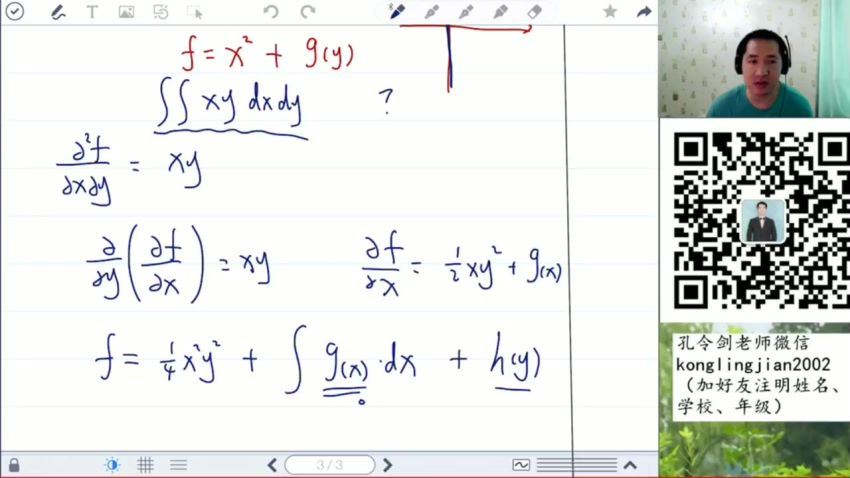 f = x² + g(y)
∬ xy dxdy ?
∂²f/∂x∂y = xy
∂/∂y (∂f/∂x) = xy ∂f/∂x = 1/2 xy² + g(x)
f = 1/4 x²y² + ∫ g(x)·dx + h(y)
3/3
孔令剑老师微信
konglingjian2002
（加好友注明姓名、
学校、年级）